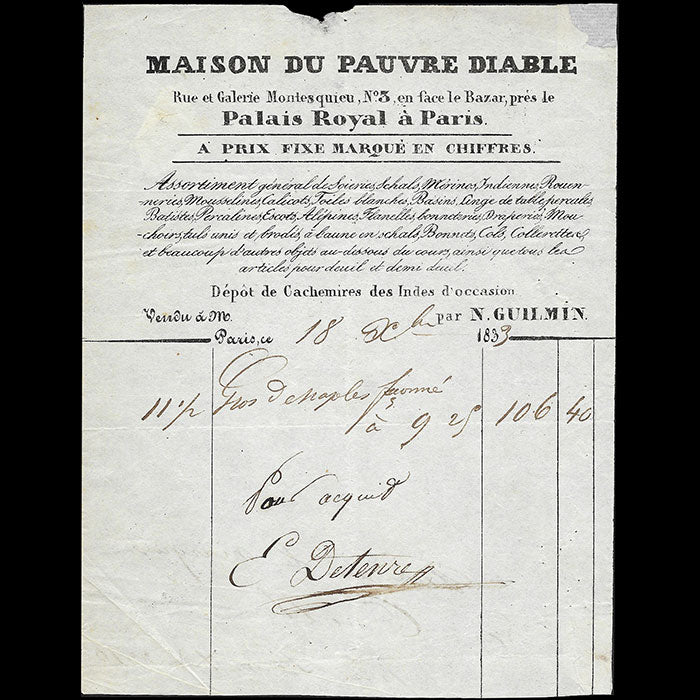 MAISON DU PAUVRE DIABLE
Rue et Galerie Montesquieu, N.º 3, en face le Bazar, prés le
Palais Royal à Paris.
A PRIX FIXE MARQUÉ EN CHIFFRES.
Assortiment général de Soieries, Schals, Mérinos, Indiennes, Rouen-
neries, Mousselines, Calicots, Toiles blanches, Basins, Linge de table, percales,
Batistes, Percalines, Escots, Alépines, Flanelles, bonneteries, Draperies, Mou-
-choirs, tuls unis et brodés, à l'aune en schals, Bonnets, Cols, Collerettes,
et beaucoup d'autres objets au-dessous du cours, ainsi que tous les
articles pour deuil et demi deuil.
Dépôt de Cachemires des Indes d'occasion
Vendu à M. par N. GUILMIN.
Paris, ce 18 Xbre 1833
11 1/2 Gros de Naples façonné
à 9 25 106 40
Pour acquit
E Detenre